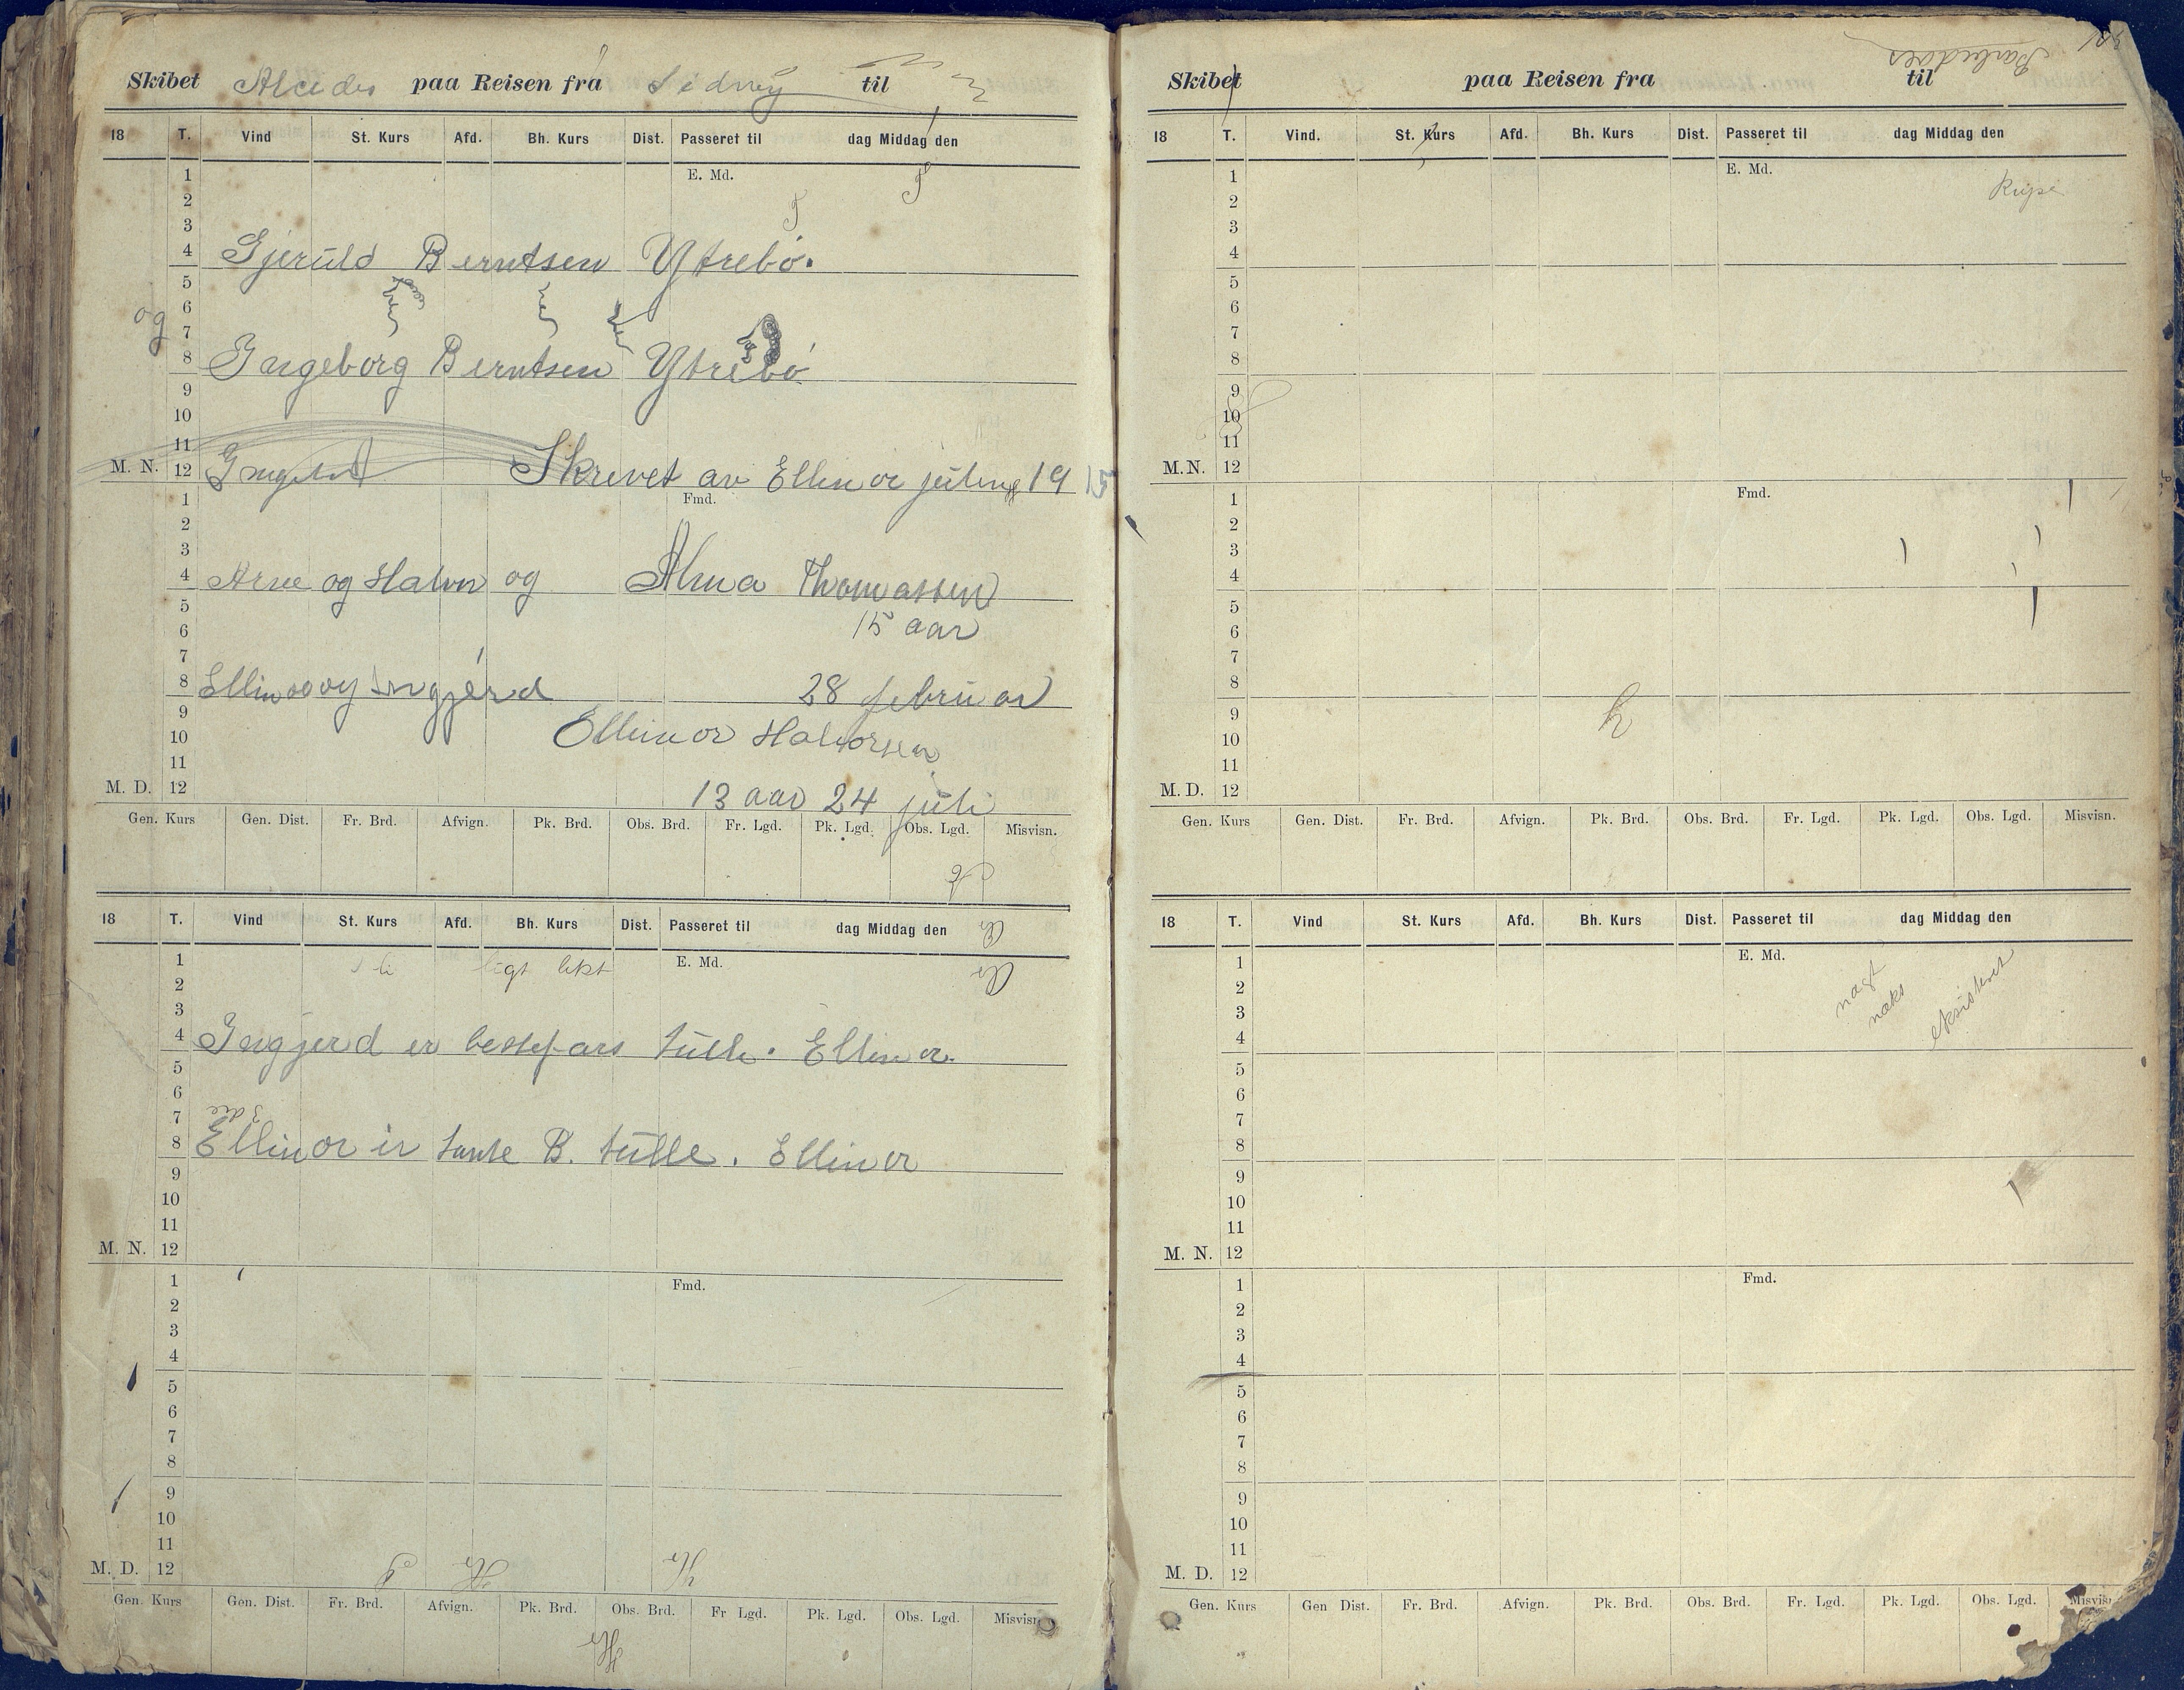 Skibet Alcides paa Reisen fra Sidney til
18 T. Vind St. Kurs Afd. Bh. Kurs Dist. Passeret til dag Middag den
E. Md.
1
2
3
4 Gjeruld Berntsen Ytrebö.
5
6
og
7
8 Ingeborg Berntsen Ytrebö
9
10
11
M. N. 12 Skrevet av Ellinor 19 15
Fmd.
1
2
3
4 Arne og Halvor og Alma Thomassen
5
6 15 aar
7
8 Ellinor og Ingjerd 28 februar
9
10 Ellinor Halvorsen
11
M. D. 12 13 aar 24 juli
Gen. Kurs Gen. Dist. Fr. Brd. Afvign. Pk. Brd. Obs. Brd. Fr. Lgd. Pk. Lgd. Obs. Lgd. Misvisn.
18 T. Vind St. Kurs Afd. Bh. Kurs Dist. Passeret til dag Middag den
1 E. Md.
2
3
4 Ingjerd er bestefars tulle. Ellinor.
5
6
7
8 Ellinor er tante B. tulle. Ellinor
9
10
11
M. N. 12
1 Fmd.
2
3
4
5
6
7
8
9
10
11
M. D. 12
Gen. Kurs Gen. Dist. Fr. Brd. Afvign. Pk. Brd. Obs. Brd. Fr Lgd. Pk. Lgd. Obs. Lgd. Misvisn.
Barbados
Skibet paa Reisen fra til
18 T. Vind. St. Kurs Afd. Bh. Kurs Dist. Passeret til dag Middag den
1 E. Md.
2
3
4
5
6
7
8
9
10
11
M. N. 12
1 Fmd.
2
3
4
5
6
7
8
9
10
11
M. D. 12
Gen. Kurs Gen. Dist. Fr. Brd. Afvign. Pk. Brd. Obs. Brd. Fr. Lgd. Pk. Lgd. Obs. Lgd. Misvisn.
18 T. Vind St. Kurs Afd. Bh. Kurs Dist. Passeret til dag Middag den
1 E. Md.
2
3
4
5
6
7
8
9
10
11
M. N. 12
1 Fmd.
2
3
4
5
6
7
8
9
10
11
M. D. 12
Gen. Kurs Gen Dist. Fr. Brd. Afvign. Pk. Brd. Obs. Brd. Fr. Lgd. Pk. Lgd. Obs. Lgd. Misvisn